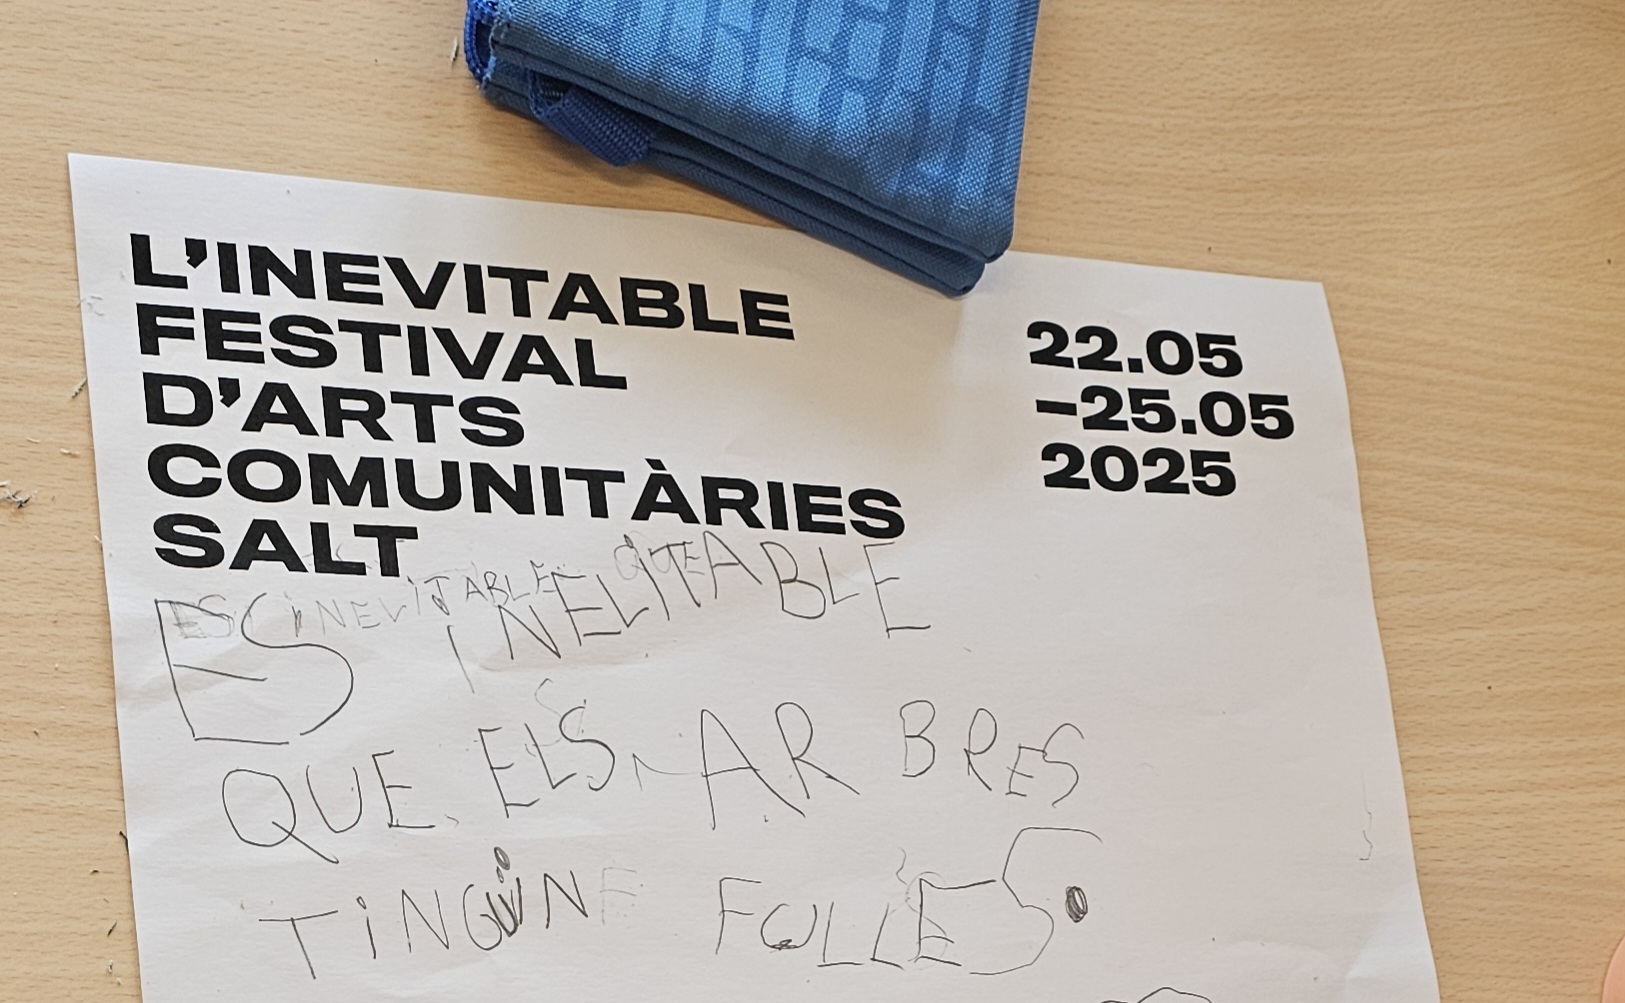 L'INEVITABLE
FESTIVAL
D'ARTS
COMUNITÀRIES
SALT
22.05
–25.05
2025
ES INEVITABLE QUE
ES INELITEABLE
QUE ELS AR BRES
TINGUIN FULLES.